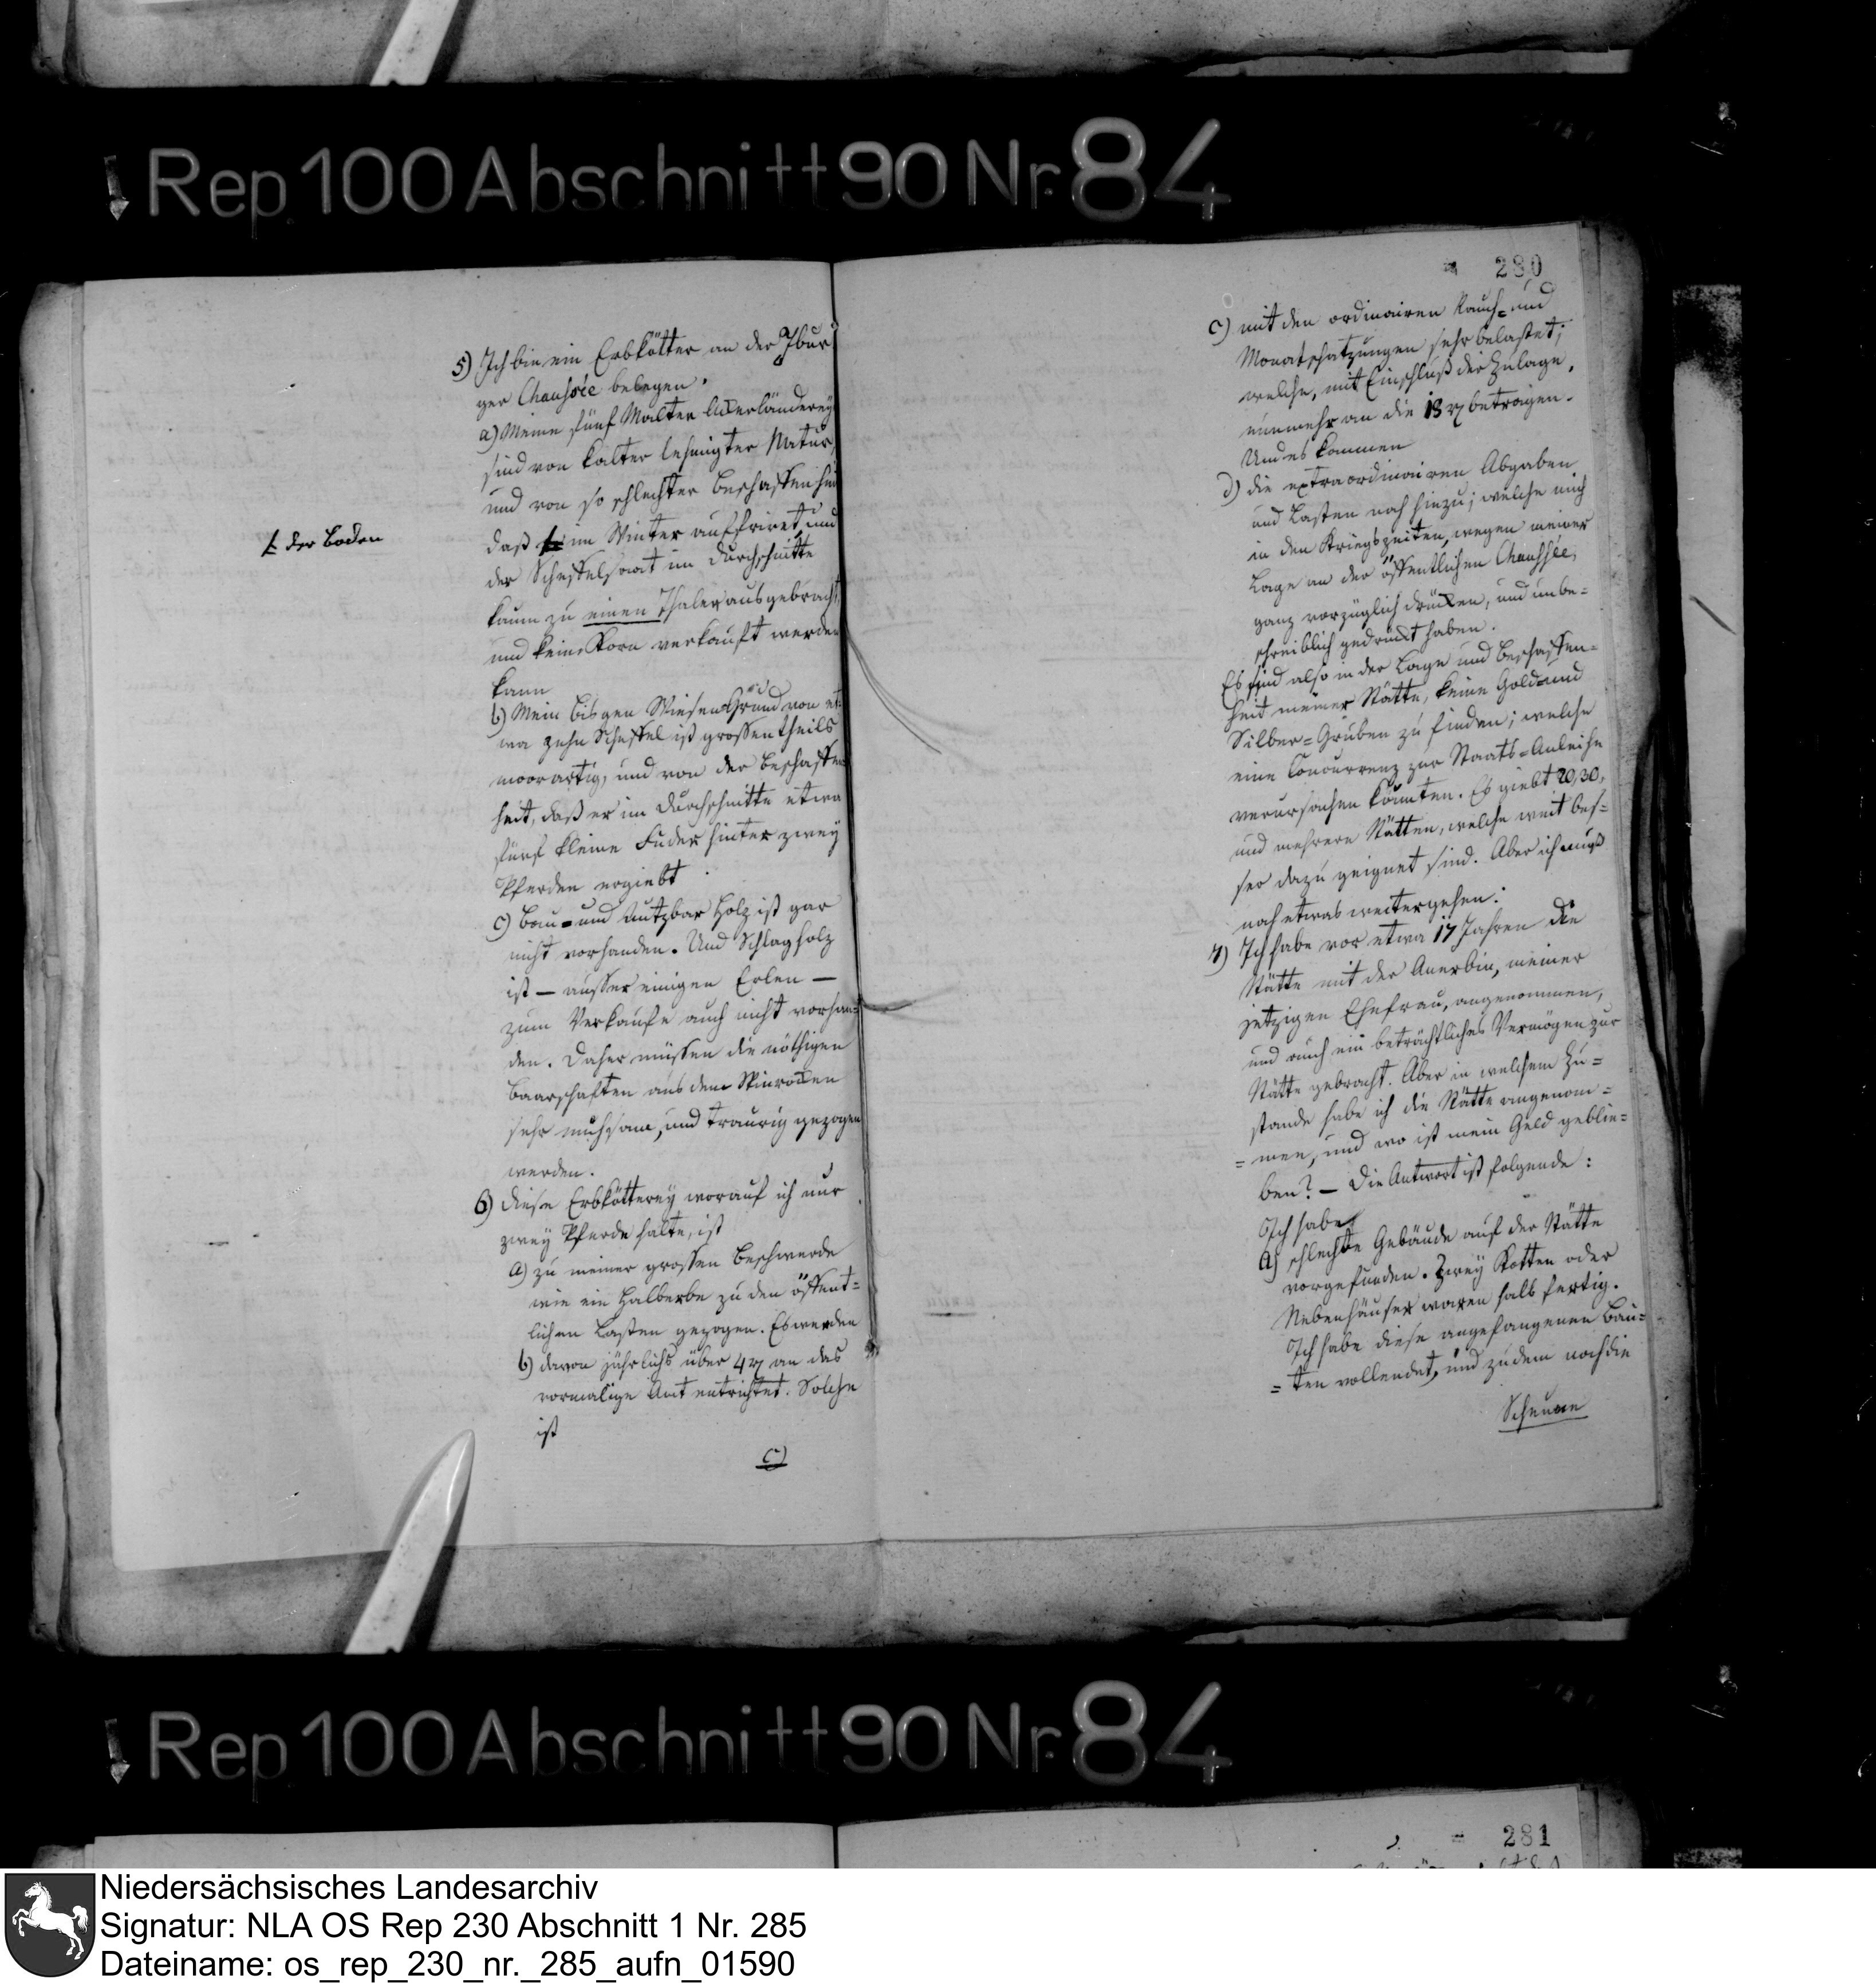 Rep 100 Abschnitt 90 Nr. 84
5) Ich bin ein Erbkötter an der Ibur
ger Chaussée belegen.
a) Meine fünf Malter Ackerländerey
sind von kalter lehmigter Natur,
und von so schlechter Beschaffenheit
daß im Winter auffriret, und
der Scheffelsaat im Durchschnitte
kaum zu einen Thaler ausgebracht,
und keine Korn verkauft werden
kann
⊦ der Boden
b) Mein bisgen Wiesen Grund von et¬
wa zehn Scheffel ist grossentheils
moorartig, und von der Beschaffen
heit, daß er im Durchschnitte etwa
fünf kleine Fuder hinter zwey
Pferden ergiebt.
c) Bau- und Nutzbar Holz ist gar
nicht vorhanden. Und Schlagholz
ist — ausser einigen Erlen —
zum Verkaufe auch nicht vorhan=
den. Daher müssen die nöthigen
Baarschaften aus dem Spinrocken
sehr muhsam, und traurig gezogen
werden.
6) Diese Erbkötterey worauf ich nur
zwey Pferde halte, ist
a) zu meiner grossen Beschwerde
wie ein Halberbe zu den öffent=
lichen Lasten gezogen. Es werden
b) davon jährlichs über 4 rt an das
vormalige Amt entrichtet. Solche
ist
c)
280
c) mit den ordinairen Rauch= und
Monatschatzungen sehr belastet;
welche, mit Einschluß der Zulage,
nunmehr an die 18 rt betragen.
Und es kommen
d) die extraordinairen Abgaben
und Lasten noch hinzu; welche mich
in den Kriegszeiten, wegen meiner
Lage an der öffentlichen Chaussée,
ganz vorzüglich drücken, und unbe=
schreiblich gedruckt haben.
Es sind also in der Lage und Beschaffen=
heit meiner Stätte, keine Gold= und
Silber=Gruben zu finden; welche
eine Concurrenz zur Staats=Anleihe
verursachen könnten. Es giebt 20, 30,
und mehrere Stätten, welche weit bes=
ser dazu geignet sind. Aber ich muß
noch etwas weitergehen:
7) Ich habe vor etwa 17 Jahren die
Stätte mit der Anerbin, meiner
jetzigen Ehefrau, angenommen,
und auch ein beträchtliches Vermögen zur
Stätte gebracht. Aber in welchem Zu=
stande habe ich die Stätte angenom=
=men, und wo ist mein Geld geblie=
ben? — Die Antwort ist folgende:
Ich habe
a) schlechte Gebäude auf der Stätte
vorgefunden. Zwey Kotten oder
Nebenhäuser waren halb fertig.
Ich habe diese angefangenen Bau=
=ten vollendet, und zudem noch die
Scheune
Rep 100 Abschnitt 90 Nr. 84
281
Niedersächsisches Landesarchiv
Signatur: NLA OS Rep 230 Abschnitt 1 Nr. 285
Dateiname: os_rep_230_nr._285_aufn_01590